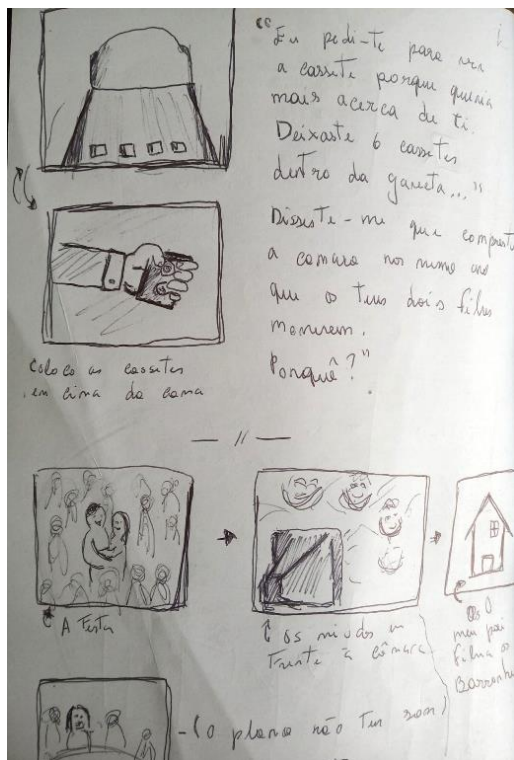 "Eu pedi-te para ver
a cassete porque queria
mais acerca de ti.
Deixaste 6 cassetes
dentro da gaveta..."
Disseste-me que compraste
a camara no mesmo ano
que os teus dois filhos
morreram.
Porquê?"
Coloco as cassetes
em cima da cama
— // —
A Festa
os miudos em
frente à câmara
O
meu pai
filma os
Barrinhos
- (o plano não tem som)